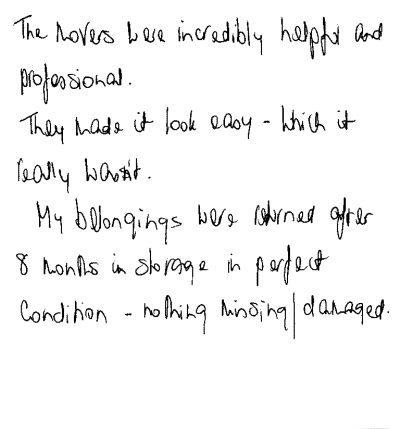 The movers were incredibly helpful and
professional.
They made it look easy - which it
really wasn't.
My belongings were returned after
8 months in storage in perfect
condition - nothing missing/damaged.